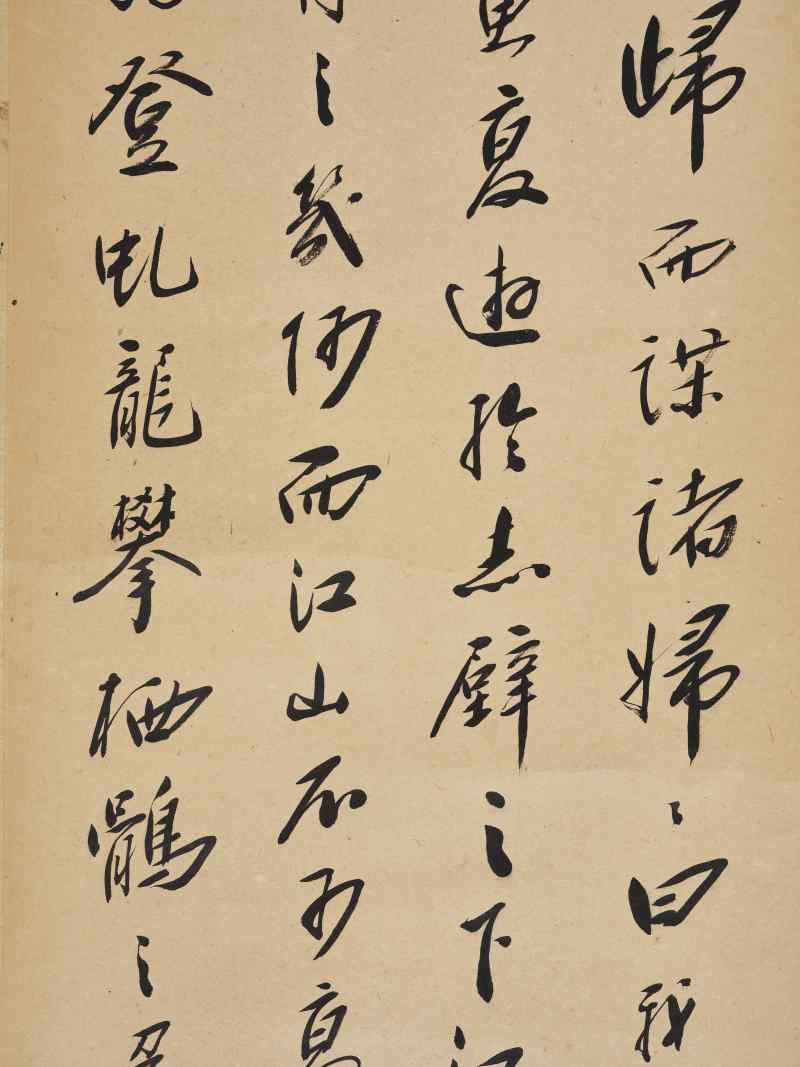 歸而謀諸婦〻曰我
魚复遊於赤壁之下江
之幾何而江山不可复
登虬龍攀栖鶻之危